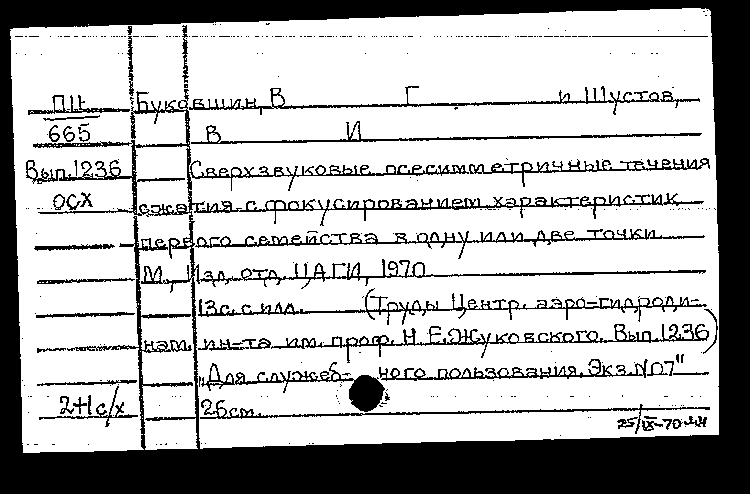 П11 Буковшин, В Г и Шустов,
665 В И
Вып.1236 Сверхзвуковые осесимметричные течения
осх сжатия с фокусированием характеристик
первого семейства в одну или две точки
М., Изд. отд. ЦАГИ, 1970
13с. с илл. (Труды Центр. аэро-гидроди-
нам. ин-та им. проф. Н Е.Жуковского. Вып.1236)
"Для служеб- ного пользования. Экз.№07"
2+1с/х 26см.
25/IX-70